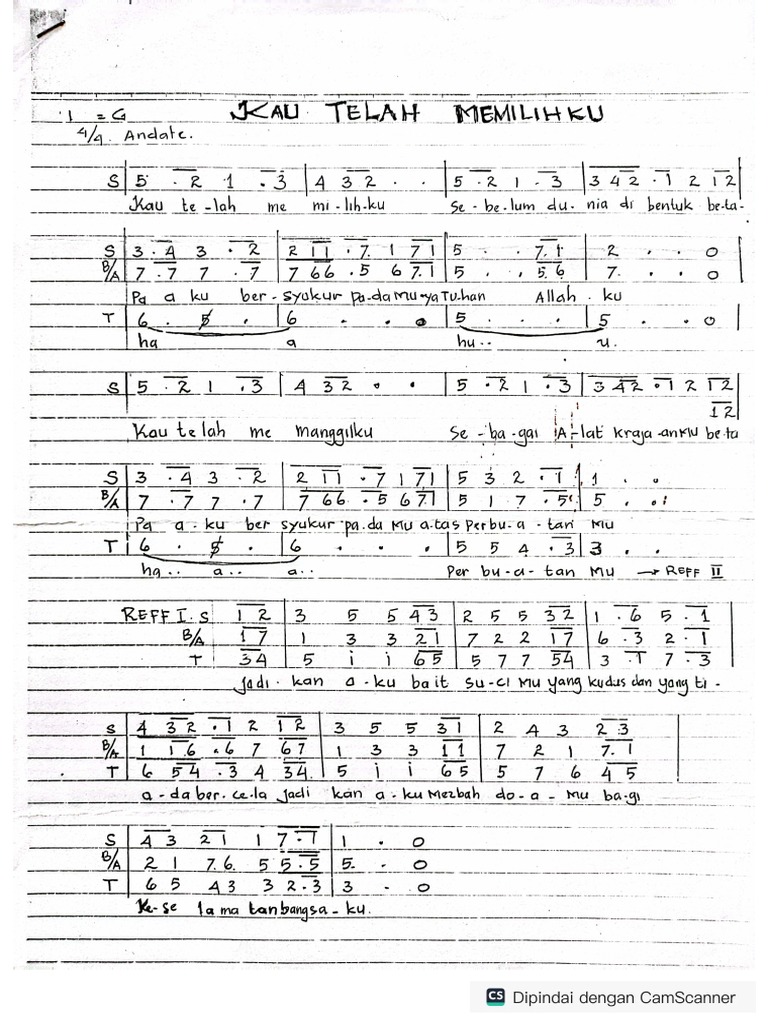 1 = G
KAU TELAH MEMILIHKU
4/4 Andate.
S | 5 . 2 1 . 3 | 4 3 2 . . | 5 . 2 1 . 3 | 3 4 2 . 1 2 1 2
Kau te-lah me mi-lih-ku Se-be-lum du-nia di bentuk be-ta-
S | 3 . 4 3 . 2 | 2 1 1 . 7 1 7 1 | 5 . . 7 . 1 | 2 . . 0
B/A | 7 . 7 7 . 7 | 7 6 6 . 5 6 7 . 1 | 5 . . 5 . 6 | 7 . . . 0
Pa a ku ber-syukur pa-da Mu-ya Tuhan Allah . ku
T | 6 . 5 . | 6 . . 0 | 5 . . . | 5 . . 0
ha a hu.. u.
S | 5 . 2 1 . 3 | 4 3 2 . . | 5 . 2 1 . 3 | 3 4 2 . 1 2 1 2
1 2
Kau te lah me manggilku Se-ba-gai A-lat kraja-anMu be-ta
S | 3 . 4 3 . 2 | 2 1 1 . 7 1 7 1 | 5 3 2 . 1 | 1 . .
B/A | 7 . 7 7 . 7 | 7 6 6 . 5 6 7 1 | 5 1 7 . 5 | 5 . .
Pa a-ku ber syukur pa-da Mu a-tas Per bu-a-tan Mu
T | 6 . 5 . | 6 . . . | 5 5 4 . 3 | 3 . .
ha.. a.. a.. Per bu-a-tan Mu → REFF II
REFF I. S | 1 2 | 3 5 5 4 3 | 2 5 5 3 2 | 1 . 6 5 . 1
B/A | 1 7 | 1 3 3 2 1 | 7 2 2 1 7 | 6 . 3 2 . 1
T | 3 4 | 5 i i 6 5 | 5 7 7 5 4 | 3 . 1 7 . 3
Jadi-kan a-ku bait su-ci Mu yang kudus dan yang ti-
S | 4 3 2 . 1 2 1 2 | 3 5 5 3 1 | 2 4 3 2 3
B/A | 1 1 6 . 6 7 6 7 | 1 3 3 1 1 | 7 2 1 7 . 1
T | 6 5 4 . 3 4 3 4 | 5 i i 6 5 | 5 7 6 4 5
a-da ber-ce-la Jadi kan a-ku Mezbah do-a-mu ba-gi
S | 4 3 2 1 1 7 . 1 | 1 . 0
B/A | 2 1 7 . 6 . 5 5 . 5 | 5 . . 0
T | 6 5 4 3 3 2 . 3 | 3 . 0
Ke-se la ma tan bangsa-ku.
CS Dipindai dengan CamScanner